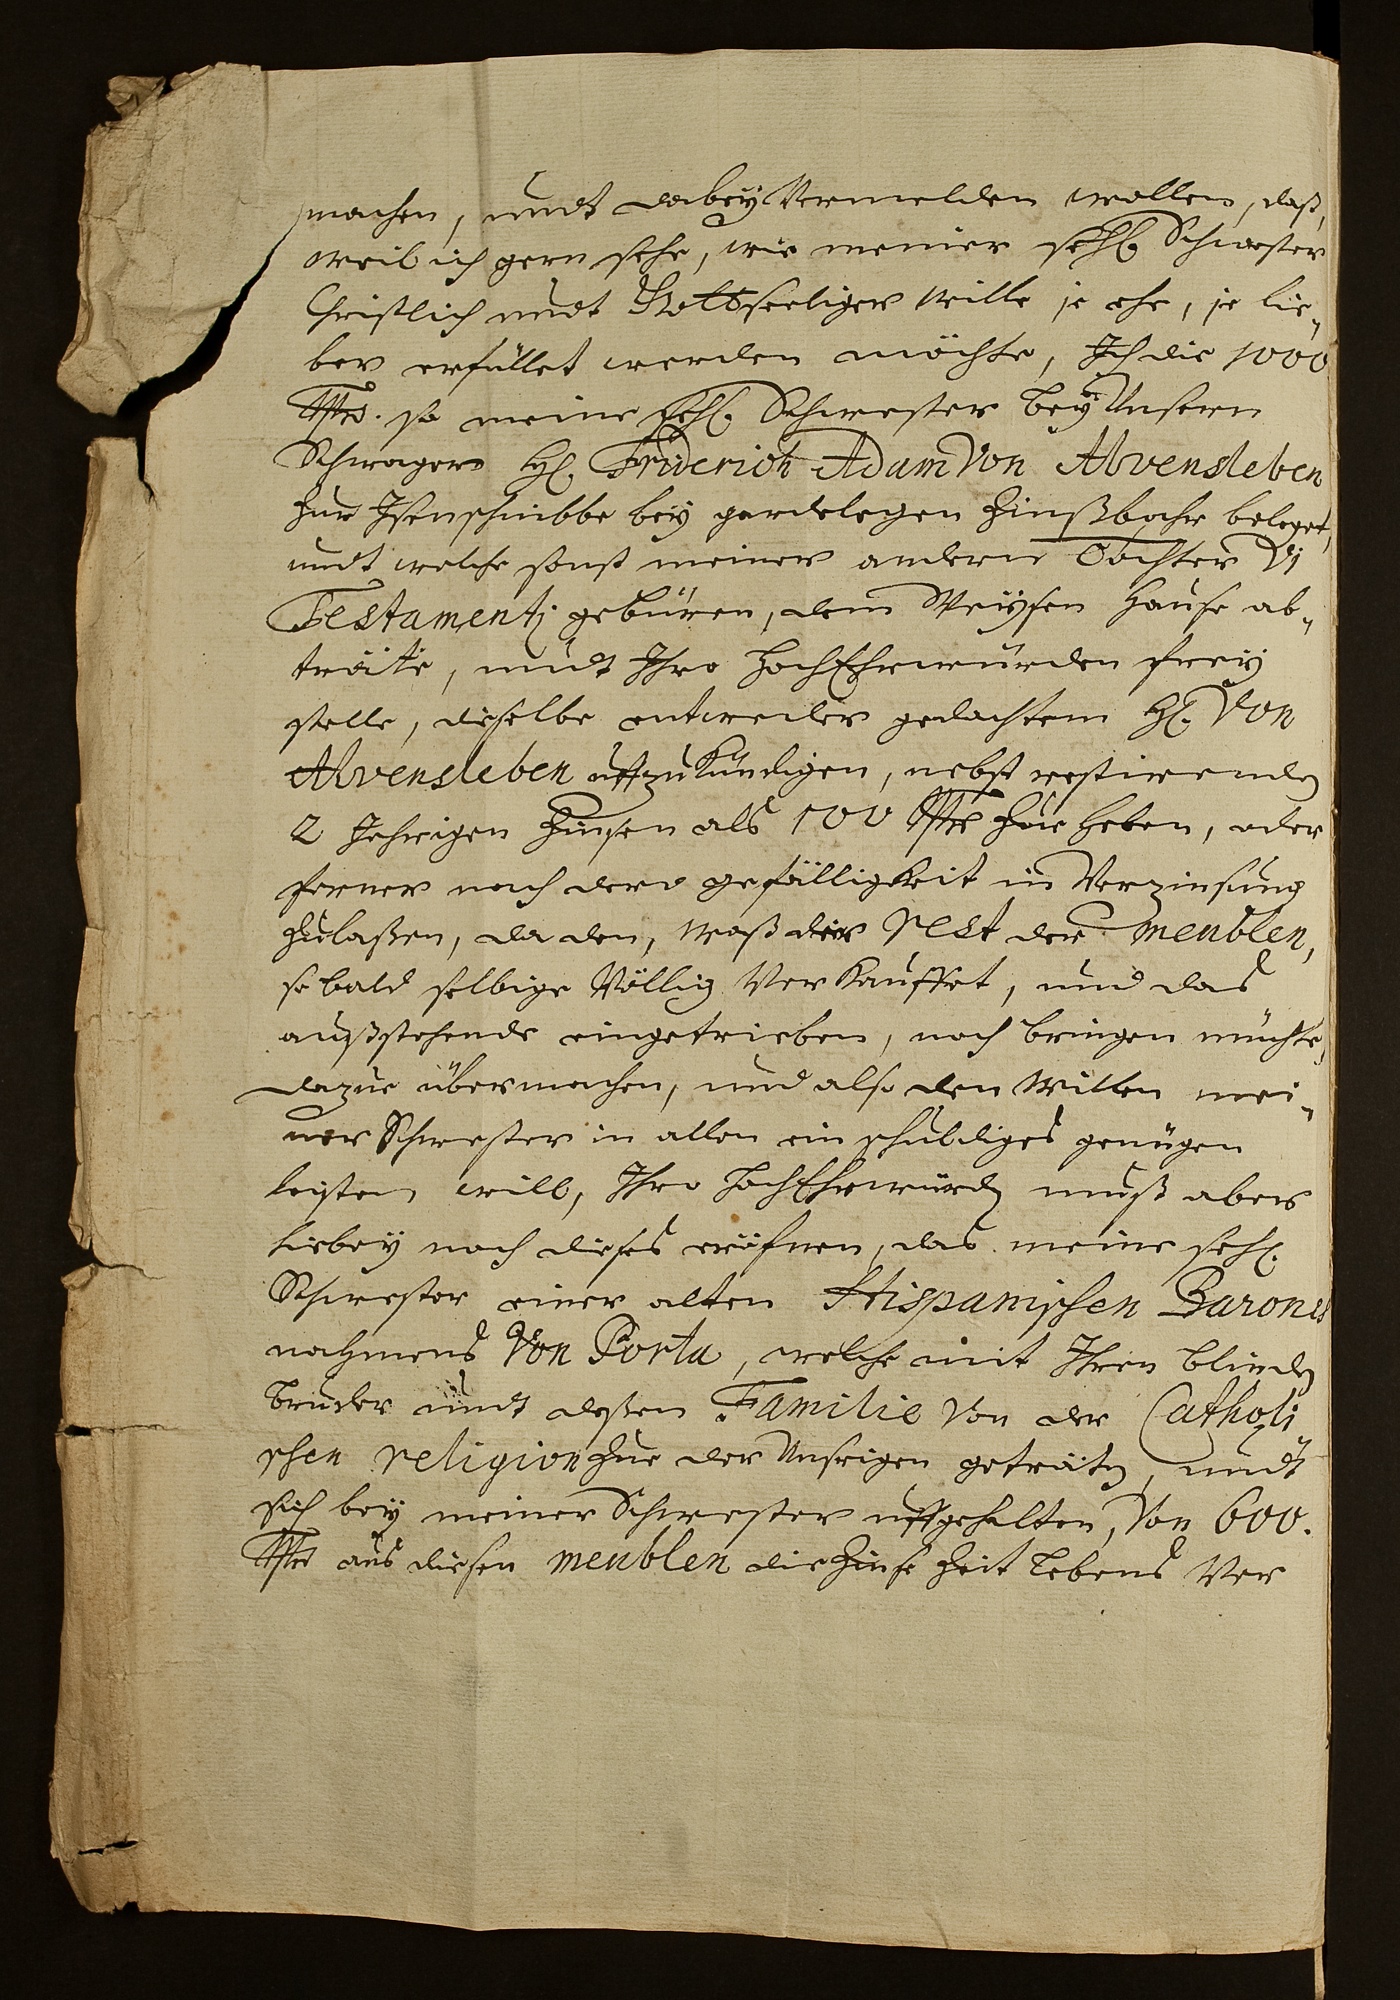 machen, undt dabey Vermelden wollen, daß,
weil ich gern sehe, wie meiner sehl. Schwester
Christlich undt Gottseeliger Wille je ehe, je lie-
ber erfüllet werden möchte, Ich die 1000
Thlr. so meine sehl. Schwester bey Unserm
Schwager H. Friderich Adam Von Alvensleben
zur Isenschnibbe bey gardelegen Zinßbahr beleget,
undt welche sonst meiner andern Tochter Vi
Testamenti gebüren, dem Weysen Hause ab-
träte, undt Ihro HochEhrwürden frey
stelle, dieselbe entweder gedachtem H. Von
Alvensleben uffzukündigen, nebst restirenden
2 Jehrigen Zinsen als 100 Thlr zue heben, oder
ferner nach dero gefälligkeit in Verzinsung
zulaßen, da den, waß der rest der meublen,
so bald selbige Völlig Verkauffet, und das
außstehende eingetrieben, noch bringen müchte,
dazue übermachen, und also den Willen mei-
ner Schwester in allen ein schuldiges genügen
leisten will, Ihro HochEhrwürd. muß aber
hiebey noch dieses eröfnen, das meine sehl.
Schwester einer alten Hispanischen Barones
nahmens Von Porta, welche mit Ihren blinden
bruder undt deßen Familie Von der Catholi
schen religion zue der Unsrigen getraten, undt
sich bey meiner Schwester uffgehalten, Von 600.
Thlr aus diesen meublen die Zinse Zeit Lebens Ver